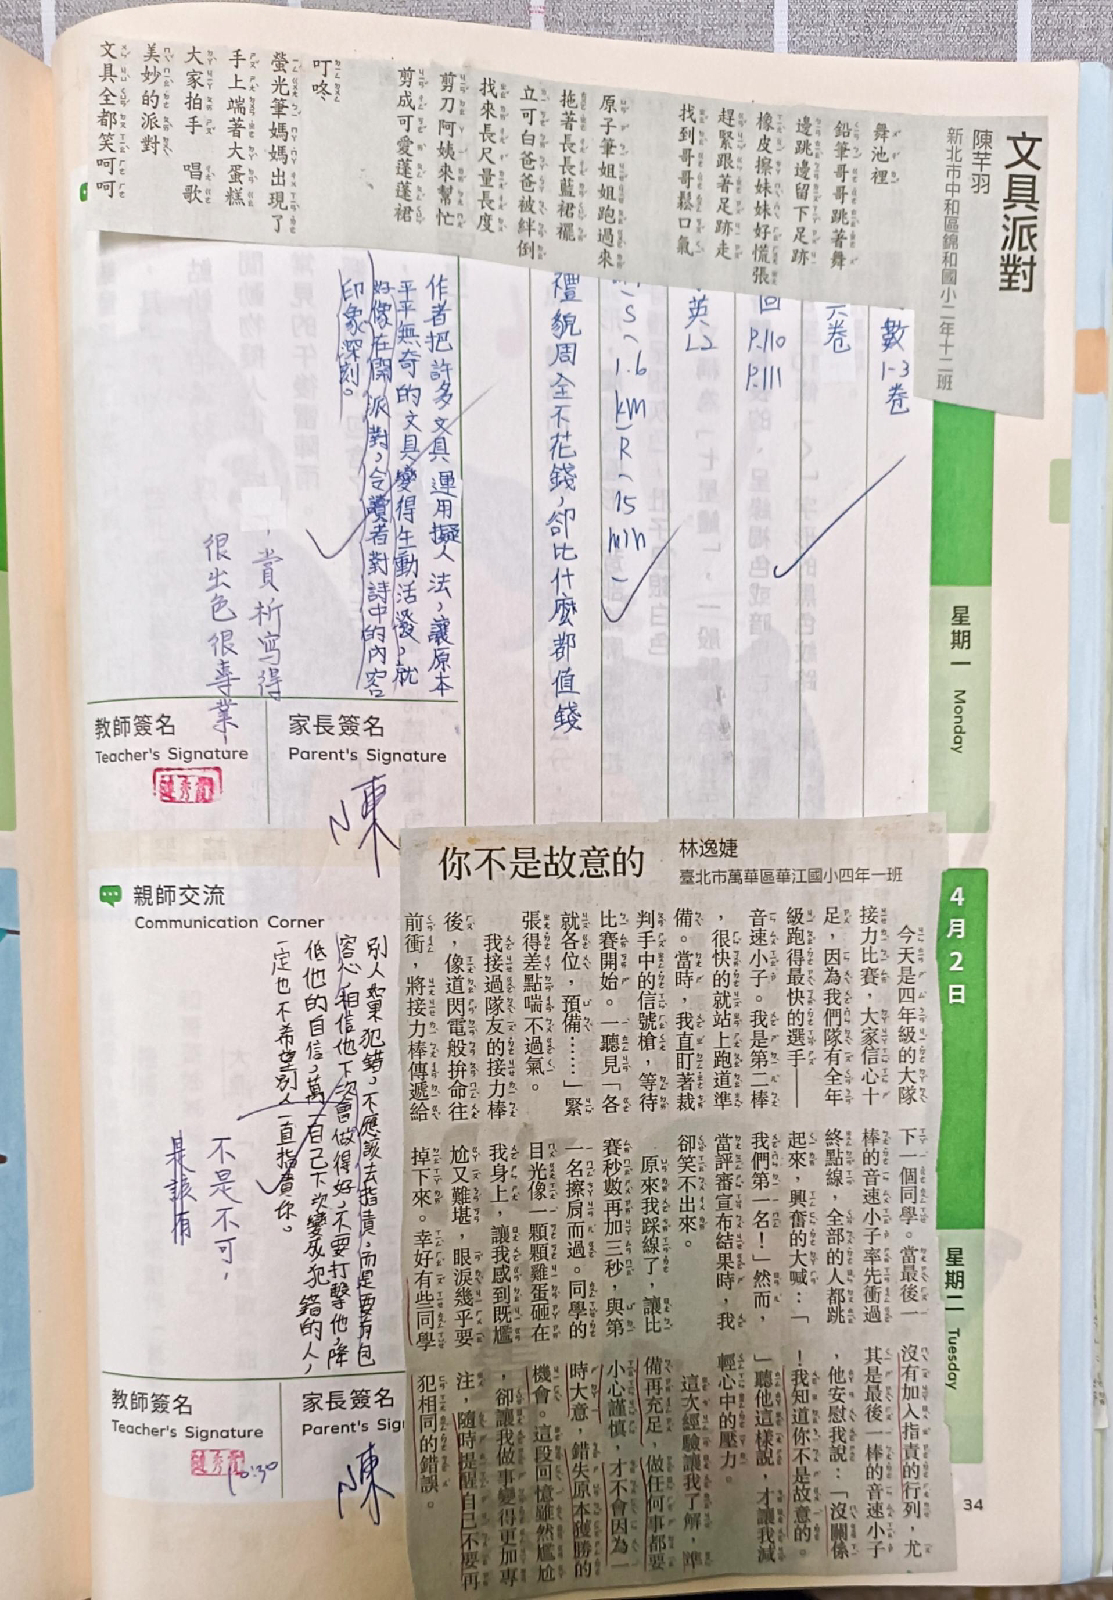 文具派對
陳芊羽
新北市中和區錦和國小二年十二班
舞池裡
鉛筆哥哥跳著舞
邊跳邊留下足跡
橡皮擦妹妹好慌張
趕緊跟著足跡走
找到哥哥鬆口氣
原子筆姐姐跑過來
拖著長長藍裙襬
立可白爸爸被絆倒
找來長尺量長度
剪刀阿姨來幫忙
剪成可愛蓬蓬裙
叮咚
螢光筆媽媽出現了
手上端著大蛋糕
大家拍手 唱歌
美妙的派對
文具全都笑呵呵
數1-3卷
卷
回P.110 P.111
英L2
S~1.6km R~15min
禮貌周全不花錢,卻比什麼都值錢
作者把許多文具運用擬人法,讓原本
平平無奇的文具變得生動活潑,就
好像在開派對,令讀者對詩中的內容
印象深刻。
賞析寫得
很出色很專業
星期一 Monday
教師簽名
Teacher's Signature
家長簽名
Parent's Signature
陳
4月2日
星期二 Tuesday
你不是故意的
林逸婕
臺北市萬華區華江國小四年一班
今天是四年級的大隊
接力比賽,大家信心十
足,因為我們隊有全年
級跑得最快的選手——
音速小子。我是第二棒
,很快的就站上跑道準
備。當時,我直盯著裁
判手中的信號槍,等待
比賽開始。一聽見「各
就各位,預備……」緊
張得差點喘不過氣。
我接過隊友的接力棒
後,像道閃電般拚命往
前衝,將接力棒傳遞給
下一個同學。當最後一
棒的音速小子率先衝過
終點線,全部的人都跳
起來,興奮的大喊:「
我們第一名!」然而,
當評審宣布結果時,我
卻笑不出來。
原來我踩線了,讓比
賽秒數再加三秒,與第
一名擦肩而過。同學的
目光像一顆顆雞蛋砸在
我身上,讓我感到既尷
尬又難堪,眼淚幾乎要
掉下來。幸好有些同學
沒有加入指責的行列,尤
其是最後一棒的音速小子
,他安慰我說:「沒關係
!我知道你不是故意的。
」聽他這樣說,才讓我減
輕心中的壓力。
這次經驗讓我了解,準
備再充足,做任何事都要
小心謹慎,才不會因為一
時大意,錯失原本獲勝的
機會。這段回憶雖然尷尬
,卻讓我做事變得更加專
注,隨時提醒自己不要再
犯相同的錯誤。
親師交流
Communication Corner
別人如果犯錯,不應該去指責,而是要有包
容心,相信他下次會做得好,不要打擊他,降
低他的自信,萬一自己下次變成犯錯的人,
一定也不希望別人一直指責你。
不是不可,
是該有
教師簽名
Teacher's Signature
10:30
家長簽名
Parent's Sig
陳
34